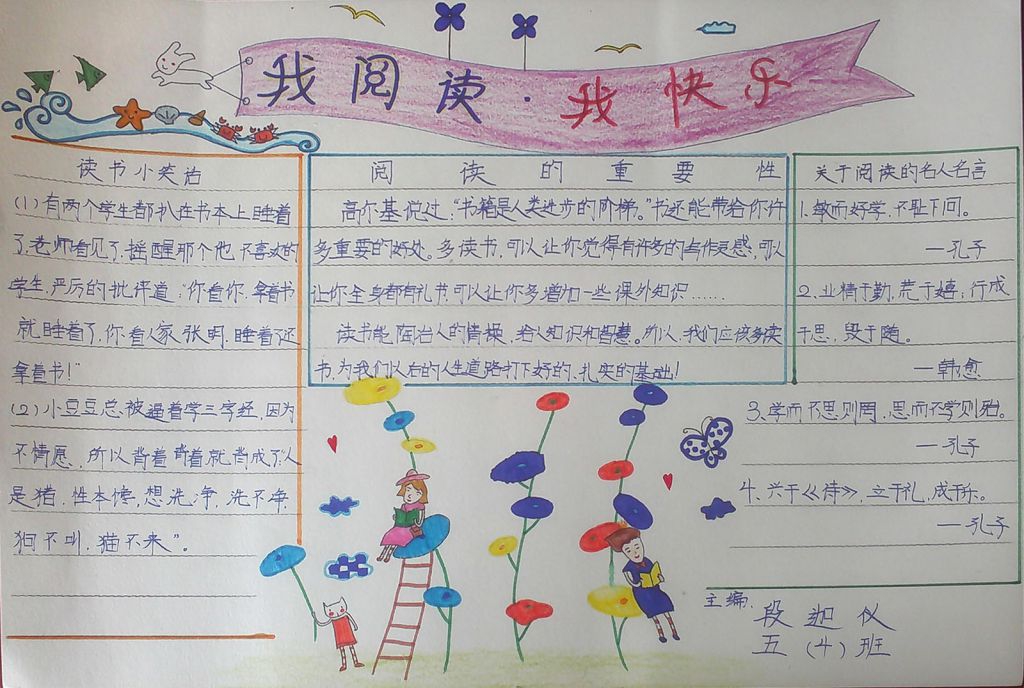 我阅读·我快乐
读书小笑话
(1)有两个学生都趴在书本上睡着
了,老师看见了,摇醒那个他不喜欢的
学生,严厉的批评道:“你看你,拿着书
就睡着了,你看人家张明,睡着了还
拿着书!”
(2)小豆豆总被逼着学三字经,因为
不情愿,所以背着背着就背成了“人
是猪,性本馋,想洗净,洗不净,
狗不叫,猫不来”。
阅读的重要性
高尔基说过:“书籍是人类进步的阶梯。”书还能带给你许
多重要的好处。多读书,可以让你觉得有许多的写作灵感,可以
让你全身都有礼节,可以让你多增加一些课外知识……
读书能陶冶人的情操,给人知识和智慧。所以,我们应该多读
书,为我们以后的人生道路打下好的、扎实的基础!
关于阅读的名人名言
1、敏而好学,不耻下问。
—孔子
2、业精于勤,荒于嬉;行成
于思,毁于随。
—韩愈
3、学而不思则罔,思而不学则殆。
—孔子
4、兴于《诗》,立于礼,成于乐。
—孔子
主编:段迦仪
五(4)班